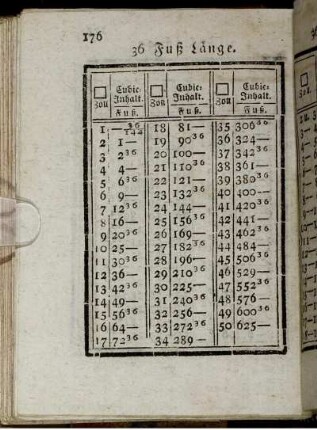 176
36 Fuß Länge.
□ Zoll | Cubic-Inhalt. Fuß. | □ Zoll | Cubic-Inhalt. Fuß. | □ Zoll | Cubic-Inhalt. Fuß.
1 | — 36/144 | 18 | 81— | 35 | 306 36
2 | 1— | 19 | 90 36 | 36 | 324—
3 | 2 36 | 20 | 100— | 37 | 342 36
4 | 4— | 21 | 110 36 | 38 | 361—
5 | 6 36 | 22 | 121— | 39 | 380 36
6 | 9— | 23 | 132 36 | 40 | 400—
7 | 12 36 | 24 | 144— | 41 | 420 36
8 | 16— | 25 | 156 36 | 42 | 441—
9 | 20 36 | 26 | 169— | 43 | 462 36
10 | 25— | 27 | 182 36 | 44 | 484—
11 | 30 36 | 28 | 196— | 45 | 506 36
12 | 36— | 29 | 210 36 | 46 | 529—
13 | 42 36 | 30 | 225— | 47 | 552 36
14 | 49— | 31 | 240 36 | 48 | 576—
15 | 56 36 | 32 | 256— | 49 | 600 36
16 | 64— | 33 | 272 36 | 50 | 625—
17 | 72 36 | 34 | 289—